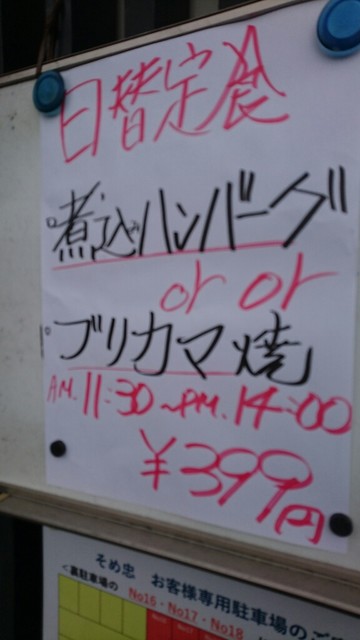 日替定食
煮込ハンバーグ
or or
ブリカマ焼
AM. 11:30~PM. 14:00
¥399円
そめ忠 お客様専用駐車場のご
<裏駐車場の No16・No17・No18